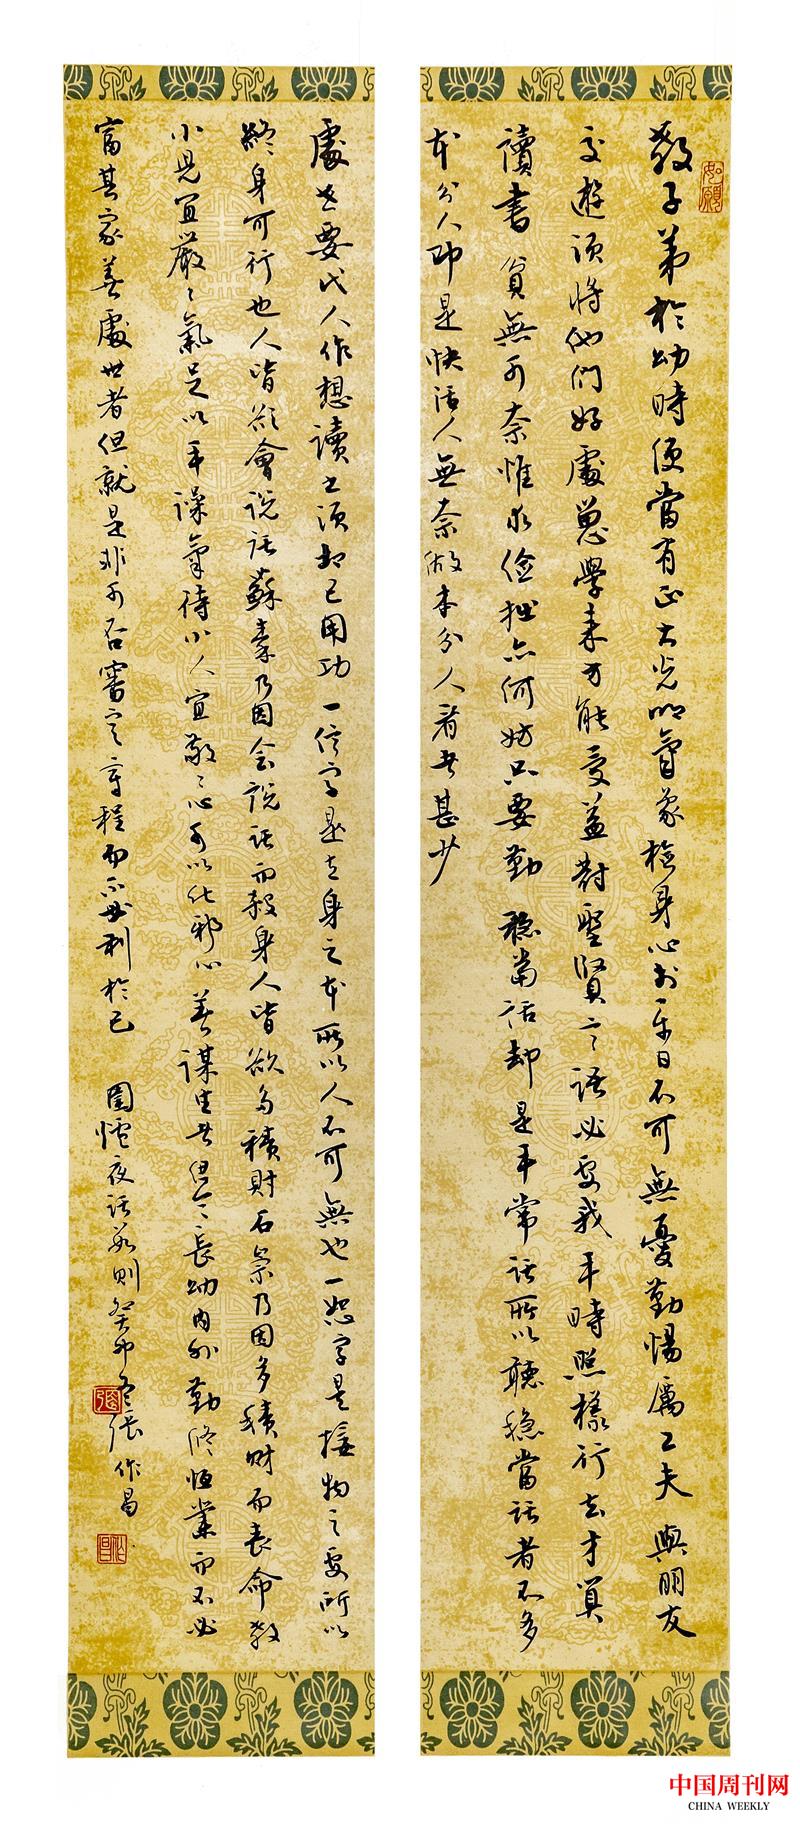 如願
教子弟於幼時便當有正大光明氣象檢身心於平日不可無憂勤惕厲工夫 與朋友
交遊須將他們好處留心學來方能受益對聖賢言語必要我平時照樣行去才算
讀書 貧無可奈惟求儉拙亦何妨只要勤 穩當話却是平常話所以聽穩當話者不多
本分人即是快活人無奈做本分人者甚少
處世要代人作想讀書須切己用功 一信字是立身之本所以人不可無也一恕字是接物之要所以
終身可行也人皆欲會說話蘇秦乃因会說話而殺身人皆欲多積財石崇乃因多積財而喪命教
小兒宜嚴々氣足以平躁氣待小人宜敬々心可以化邪心 善謀生者但令長幼內外勤修恒業而不必
富其家善處世者但就是非可否審定章程而不必利於己 圍爐夜話數則癸卯冬張作昌
張
作昌
中国周刊网
CHINA WEEKLY